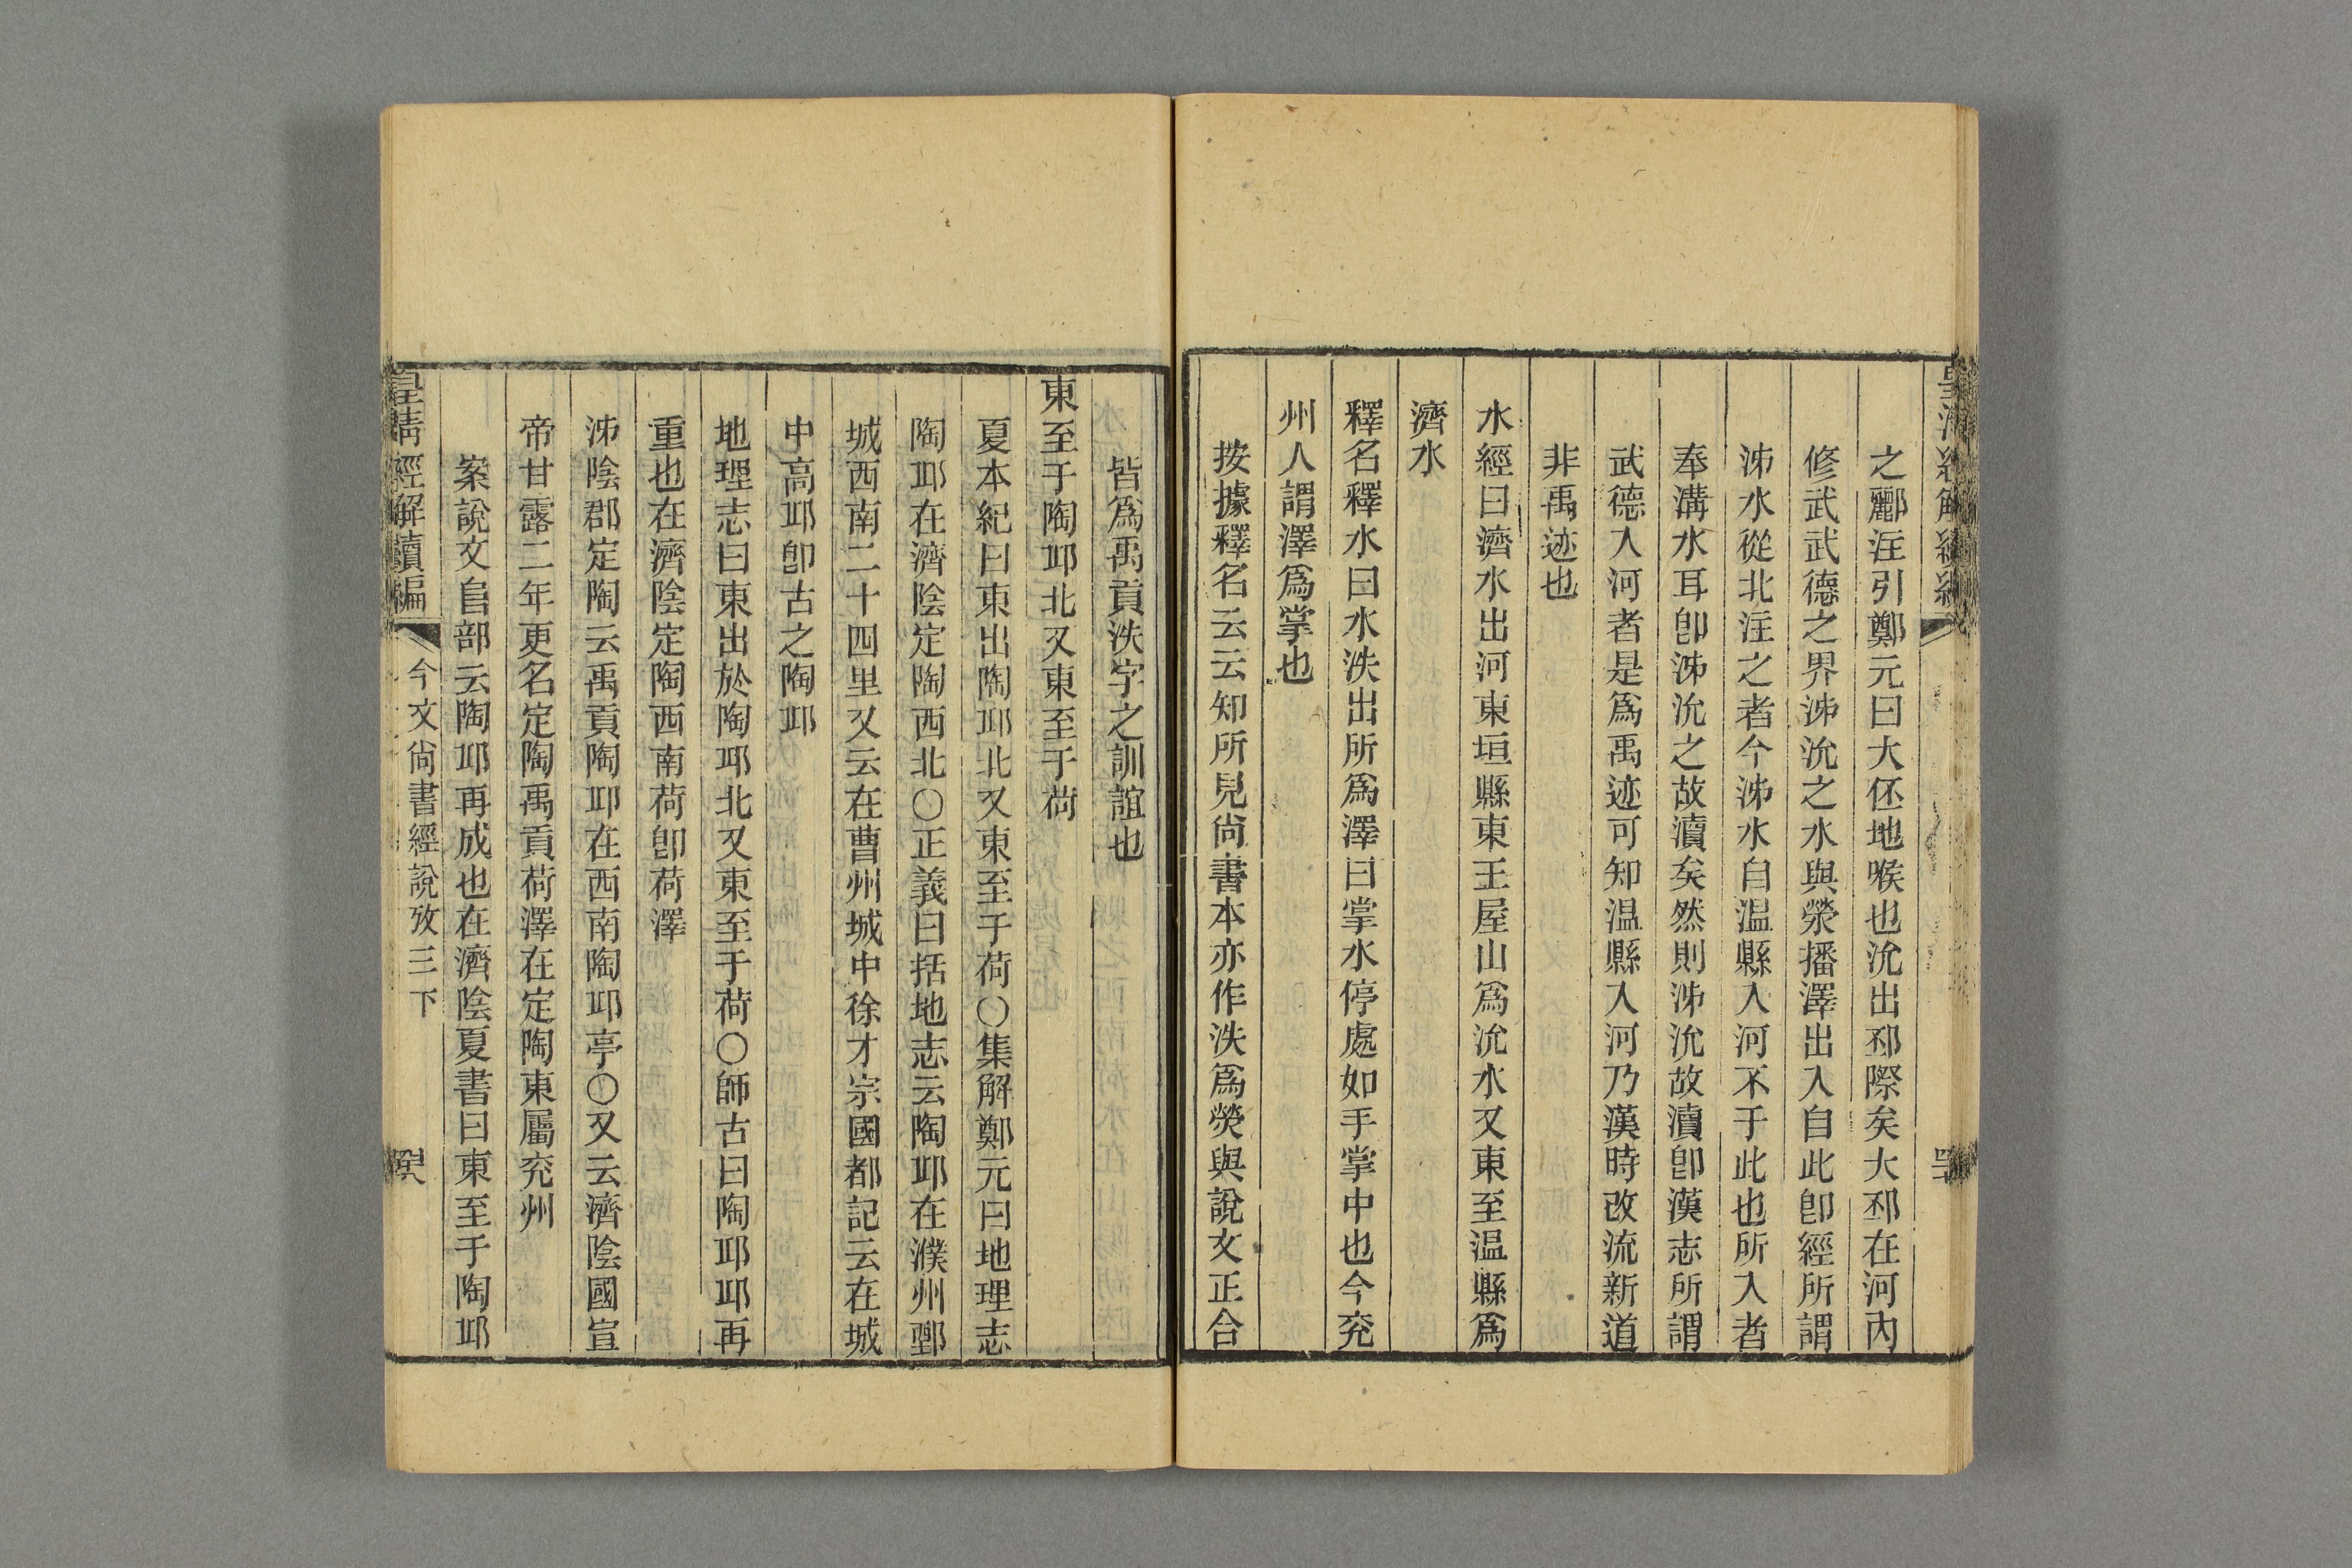 皇清經解續編
之酈注引鄭元曰大伾地喉也沇出伾際矣大伾在河内
修武武德之界泲沇之水與滎播澤出入自此卽經所謂
泲水從北注之者今泲水自温縣入河不于此也所入者
奉溝水耳卽泲沇之故瀆矣然則泲沇故瀆卽漢志所謂
武德入河者是爲禹迹可知温縣入河乃漢時改流新道
非禹迹也
水經曰濟水出河東垣縣東王屋山爲沇水又東至温縣爲
濟水
釋名釋水曰水泆出所爲澤曰掌水停處如手掌中也今兖
州人謂澤爲掌也
按據釋名云云知所見尙書本亦作泆爲滎與說文正合
皆爲禹貢泆字之訓誼也
東至于陶邱北又東至于荷
夏本紀曰東出陶邱北又東至于荷○集解鄭元曰地理志
陶邱在濟陰定陶西北○正義曰括地志云陶邱在濮州鄄
城西南二十四里又云在曹州城中徐才宗國都記云在城
中高邱卽古之陶邱
地理志曰東出於陶邱北又東至于荷○師古曰陶邱邱再
重也在濟陰定陶西南荷卽荷澤
泲陰郡定陶云禹貢陶邱在西南陶邱亭○又云濟陰國宣
帝甘露二年更名定陶禹貢荷澤在定陶東屬兖州
案說文𨸏部云陶邱再成也在濟陰夏書曰東至于陶邱
皇清經解續編
今文尙書經說攷三下